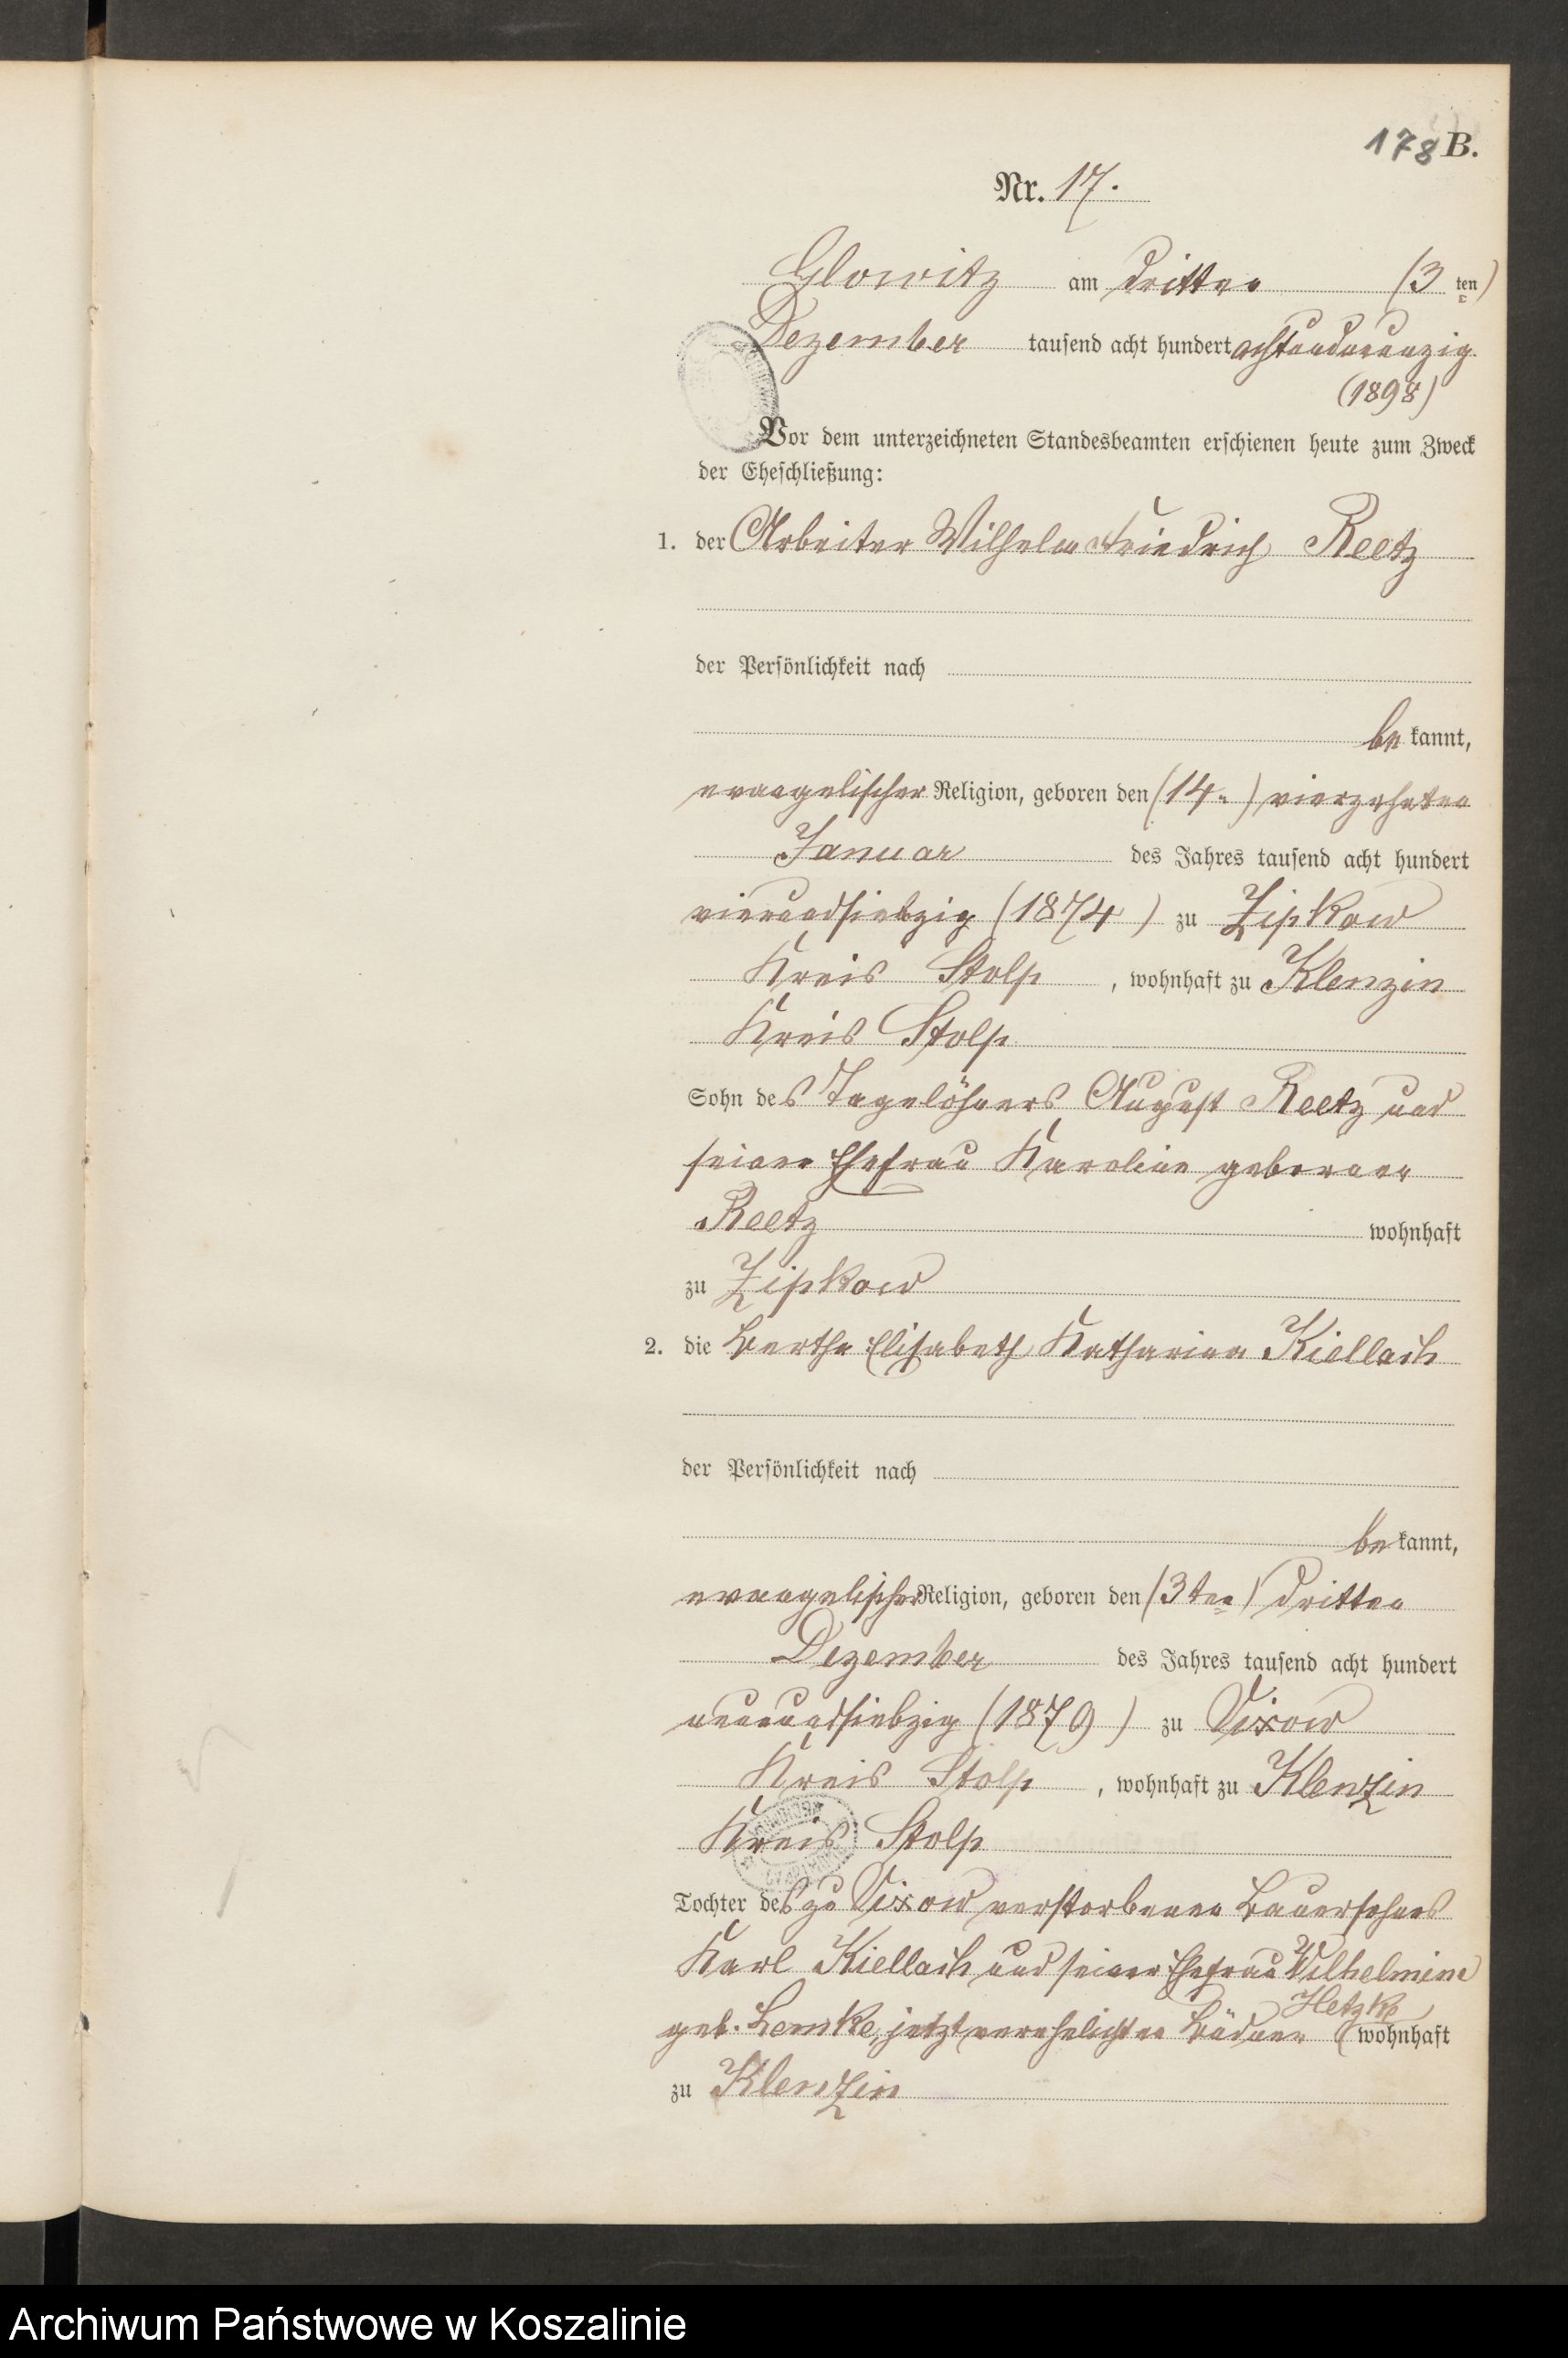 178 B.
Nr. 17.
Glowitz am dritten (3 ten)
Dezember tausend acht hundert achtundneunzig
(1898)
Vor dem unterzeichneten Standesbeamten erschienen heute zum Zweck
der Eheschließung:
1. der Arbeiter Wilhelm Friedrich Reetz
der Persönlichkeit nach
be kannt,
evangelischer Religion, geboren den (14.) vierzehnten
Januar des Jahres tausend acht hundert
vierundsiebzig (1874) zu Zipkow
Kreis Stolp, wohnhaft zu Klenzin
Kreis Stolp
Sohn des Tagelöhners August Reetz und
seiner Ehefrau Karoline geborener
Reetz wohnhaft
zu Zipkow
2. die Bertha Elisabeth Katharina Kiellach
der Persönlichkeit nach
be kannt,
evangelischer Religion, geboren den (3ten) dritten
Dezember des Jahres tausend acht hundert
neunundsiebzig (1879) zu Vixow
Kreis Stolp, wohnhaft zu Klenzin
Kreis Stolp
Tochter des zu Vixow verstorbenen Bauersohnes
Karl Kiellach und seiner Ehefrau Wilhelmine
geb. Lemke, jetzt verehelichten Büdner Hetzke wohnhaft
zu Klenzin
Archiwum Państwowe w Koszalinie